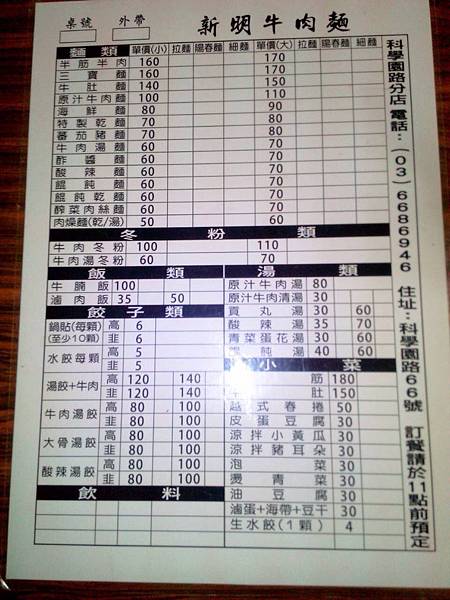 桌號 外帶 新明牛肉麵
麵類 單價(小) 拉麵 陽春麵 細麵 單價(大) 拉麵 陽春麵 細麵
半筋半肉 160 170
三寶麵 160 170
牛肚麵 140 150
原汁牛肉麵 100 110
海鮮麵 80 90
特製乾麵 70 80
蕃茄豬麵 70 80
牛肉湯麵 60 70
酢醬麵 60 70
酸辣麵 60 70
餛飩麵 60 70
餛飩乾麵 60 70
榨菜肉絲麵 60 70
肉燥麵(乾/湯) 50 60
冬粉類
牛肉冬粉 100 110
牛肉湯冬粉 60 70
飯類
牛腩飯 100
滷肉飯 35 50
餃子類
鍋貼(每顆)(至少10顆) 高 6
韭 6
水餃每顆 高 5
韭 5
湯餃+牛肉 高 120 140
韭 120 140
牛肉湯餃 高 80 100
韭 80 100
大骨湯餃 高 80 100
韭 80 100
酸辣湯餃 高 80 100
韭 80 100
飲料
湯類
原汁牛肉湯 80
原汁牛肉清湯 30
貢丸湯 30 60
酸辣湯 35 70
青菜蛋花湯 30 60
餛飩湯 40 60
小菜
筋 180
肚 150
越式春捲 50
皮蛋豆腐 30
涼拌小黃瓜 30
涼拌豬耳朵 30
泡菜 30
燙青菜 30
油豆腐 30
滷蛋+海帶+豆干 30
生水餃(1顆) 4
科學園路分店 電話:(03)6686946 住址:科學園路66號 訂餐請於11點前預定